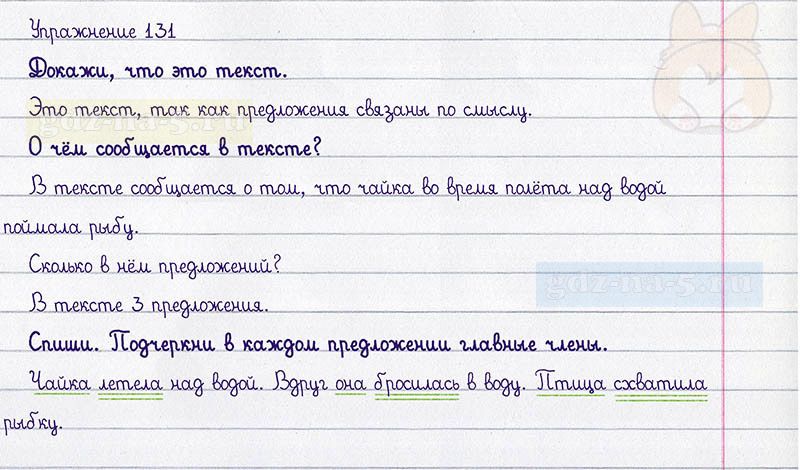 Упражнение 131
Докажи, что это текст.
Это текст, так как предложения связаны по смыслу.
gdz-na-5.ru
О чём сообщается в тексте?
В тексте сообщается о том, что чайка во время полёта над водой
поймала рыбу.
Сколько в нём предложений?
gdz-na-5.ru
В тексте 3 предложения.
Спиши. Подчеркни в каждом предложении главные члены.
Чайка летела над водой. Вдруг она бросилась в воду. Птица схватила
рыбку.